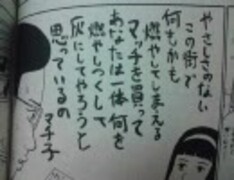 やさしさのない
この街で
何もかも
燃やしてしまえる
マッチを買って
あなたは一体何を
燃やしつくして
灰にしてやろうと
思っているの
マチ子